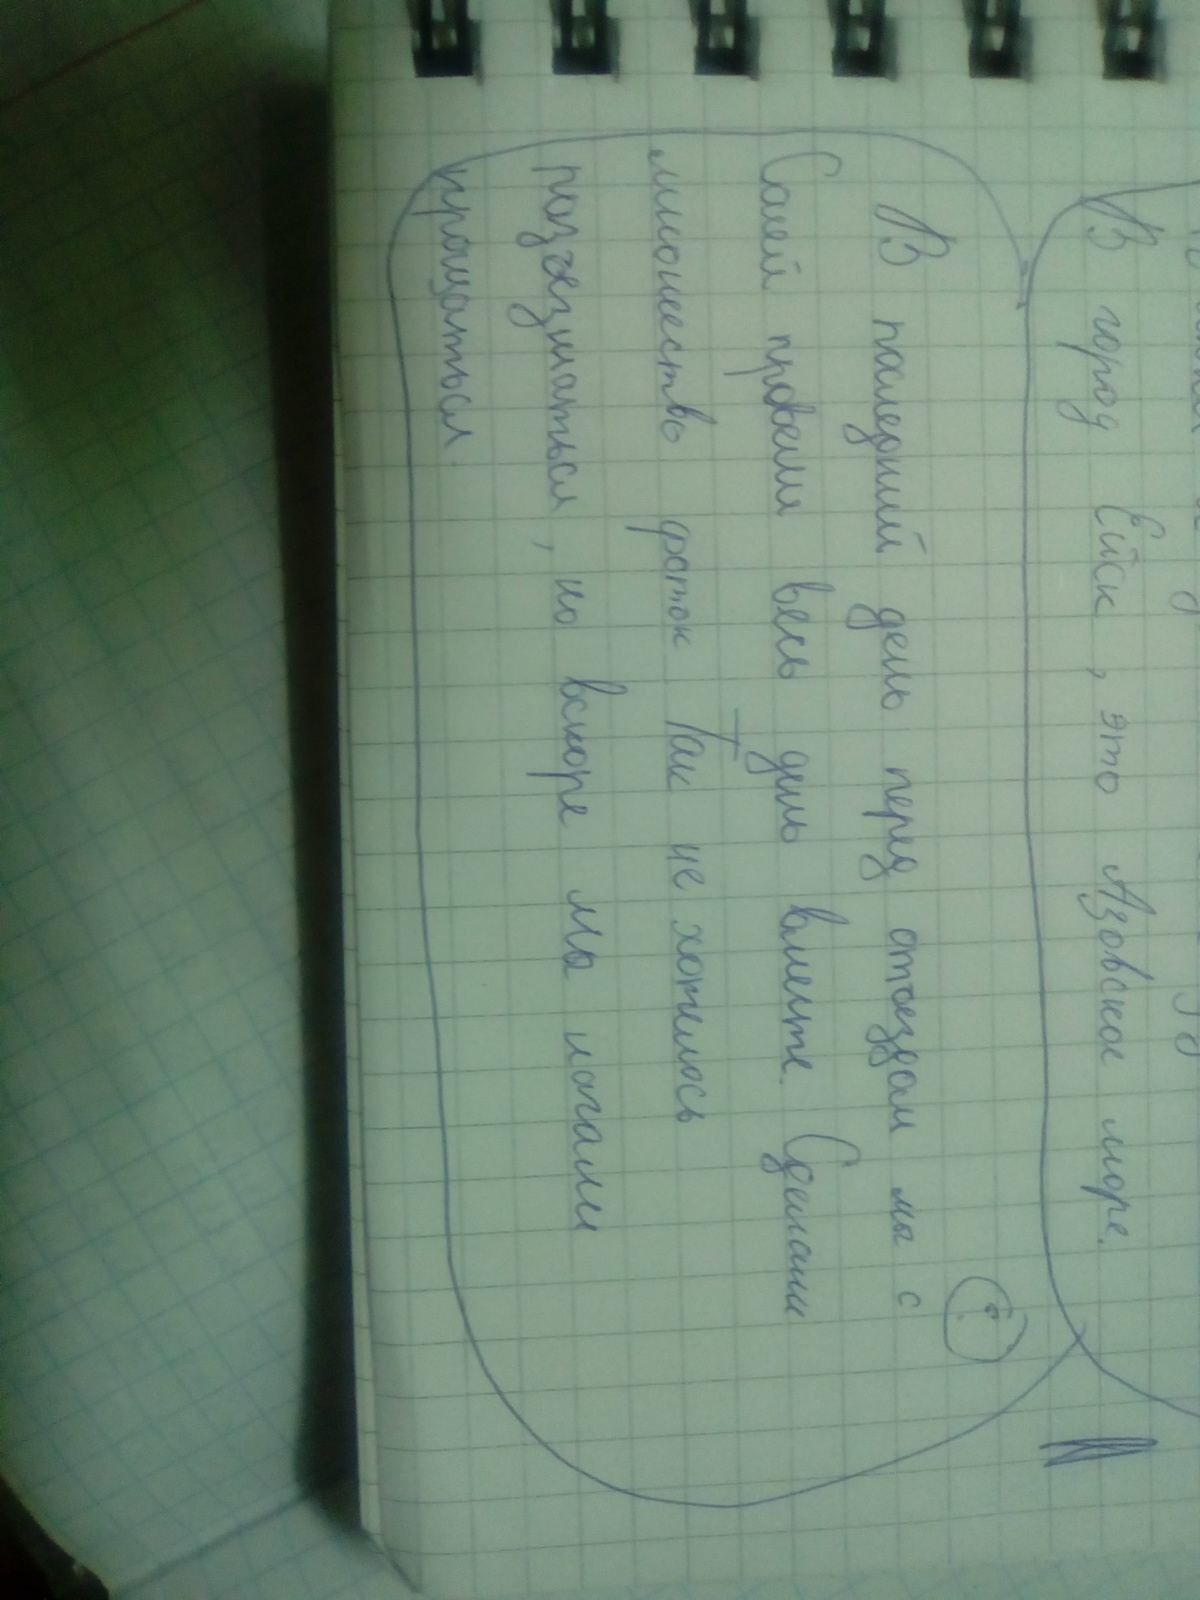 В город Ейск, это Азовское море.
В последний день перед отъездом мы с
Солей провели весь день вместе. Сделали
множество фоток Так не хотелось
разъезжаться, но вскоре мы начали
прощаться.